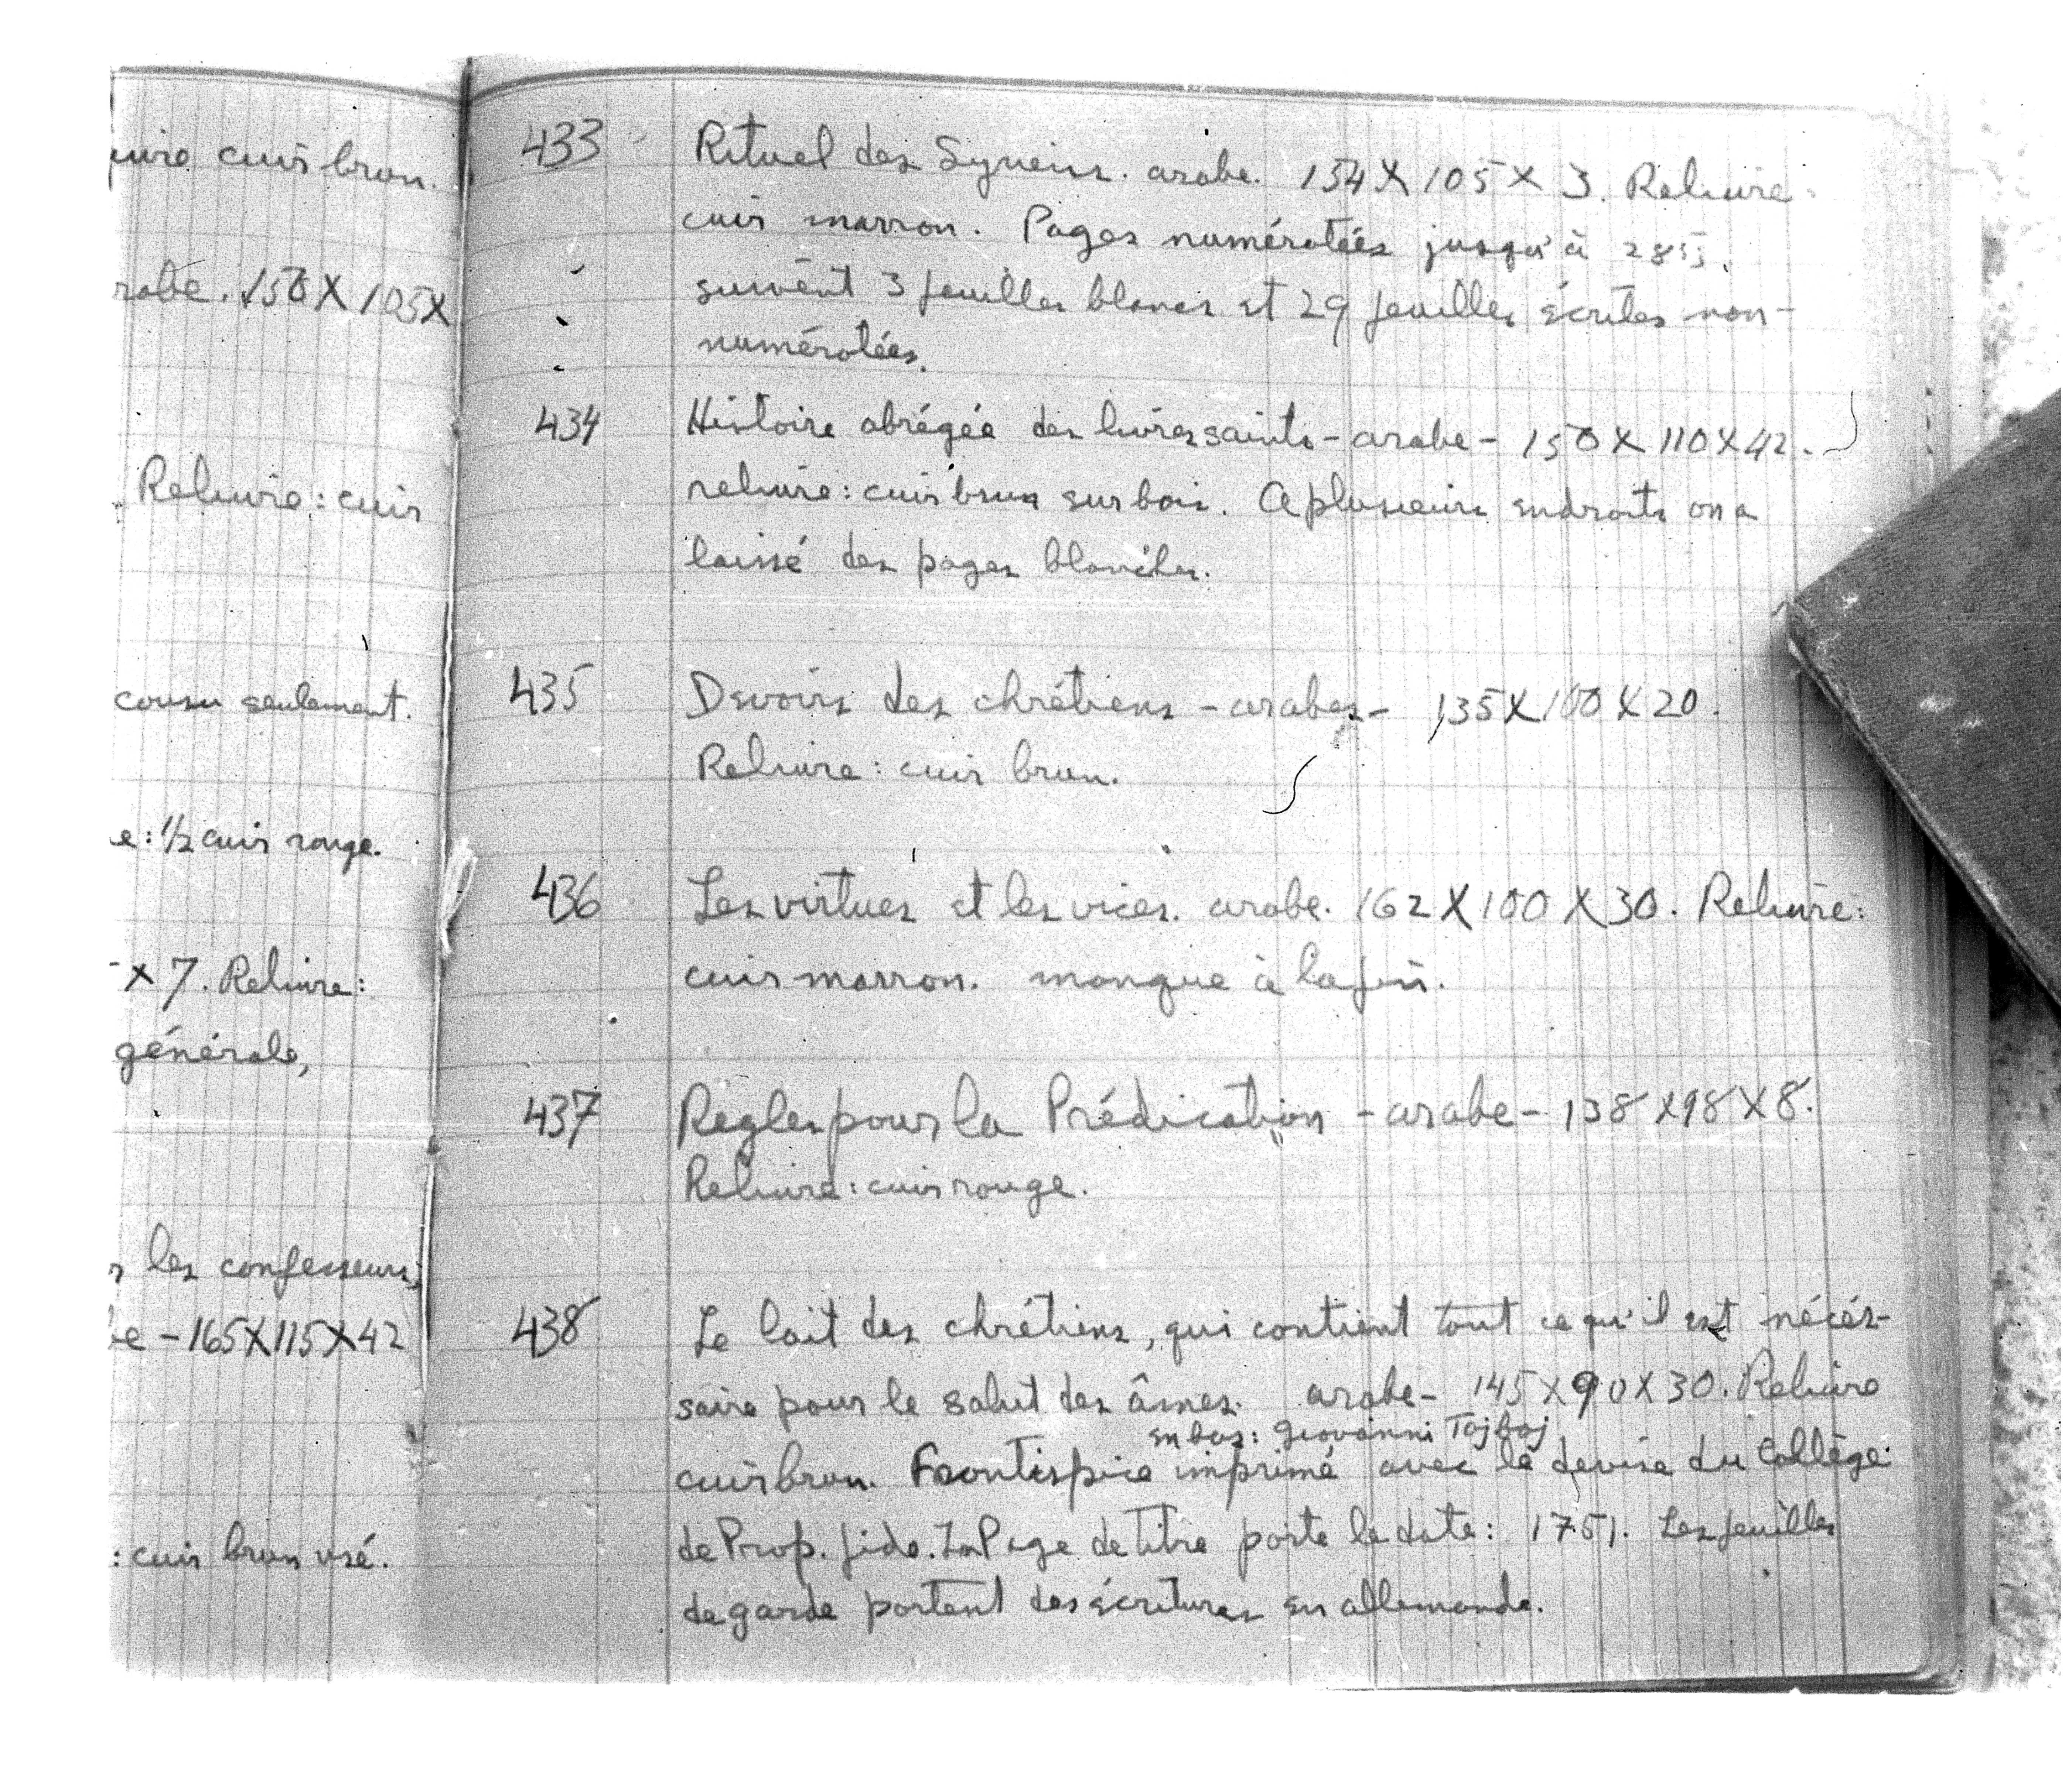 cuir brun.
rabe. 150 X 105 X
Reliure: cuir
cousu seulement.
e: 1/2 cuir rouge.
X 7. Reliure:
générale,
les confesseurs,
be - 165X115X42
: cuir brun usé.
433 Rituel des Syriens. arabe. 154 X 105 X 3. Reliure:
cuir marron. Pages numérotées jusqu'à 285;
suivent 3 feuilles blancs et 29 feuilles écrites non-
numérotées.
434 Histoire abrégée des livres saints - arabe - 150 X 110 X 42.
reliure: cuir brun sur bois. A plusieurs endroits on a
laissé des pages blanches.
435 Devoirs des chrétiens - arabes - 135 X 100 X 20.
Reliure: cuir brun.
436 Les virtues et les vices. arabe. 162 X 100 X 30. Reliure:
cuir marron. manque à la fin.
437 Regles pour la Prédication - arabe - 138 X 98 X 8.
Reliure: cuir rouge.
438 Le lait des chrétiens, qui contient tout ce qu'il est nécés-
saire pour le salut des âmes. arabe - 145 X 90 X 30. Reliure
en bas: Giovanni
cuir brun. Frontispice imprimé avec la devise du Collège
de Prop. fide. La Page de titre porte la date: 1751. Les feuilles
de garde portent des écritures en allemande.